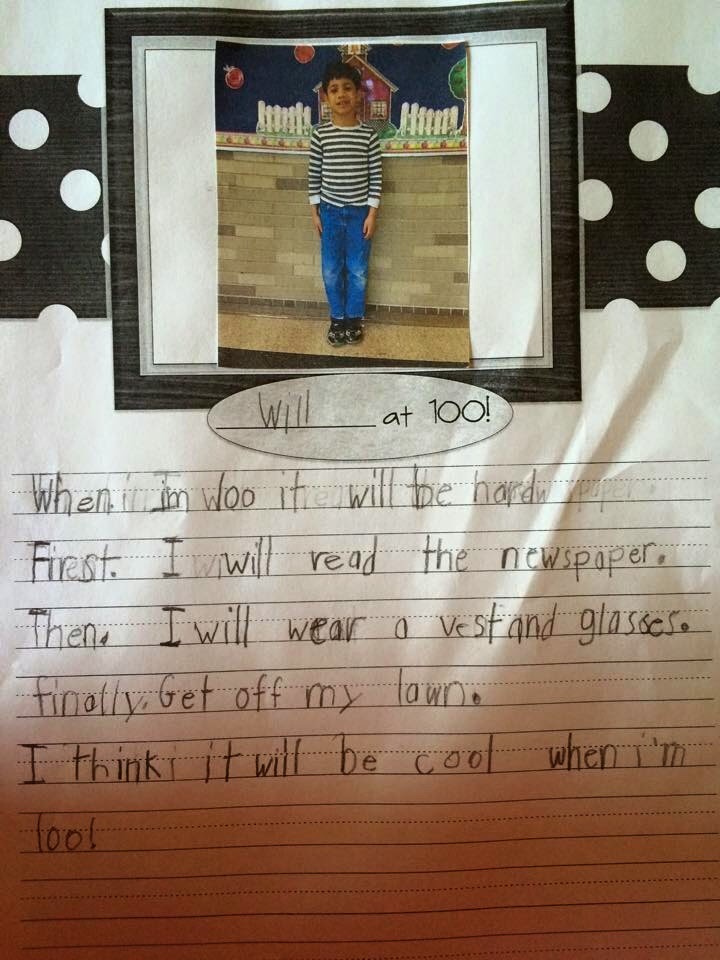 Will at 100!
When im 100 it will be hard
First. I will read the newspaper.
Then. I will wear a vest and glasses.
finally. Get off my lawn.
I think it will be cool when i'm
100!